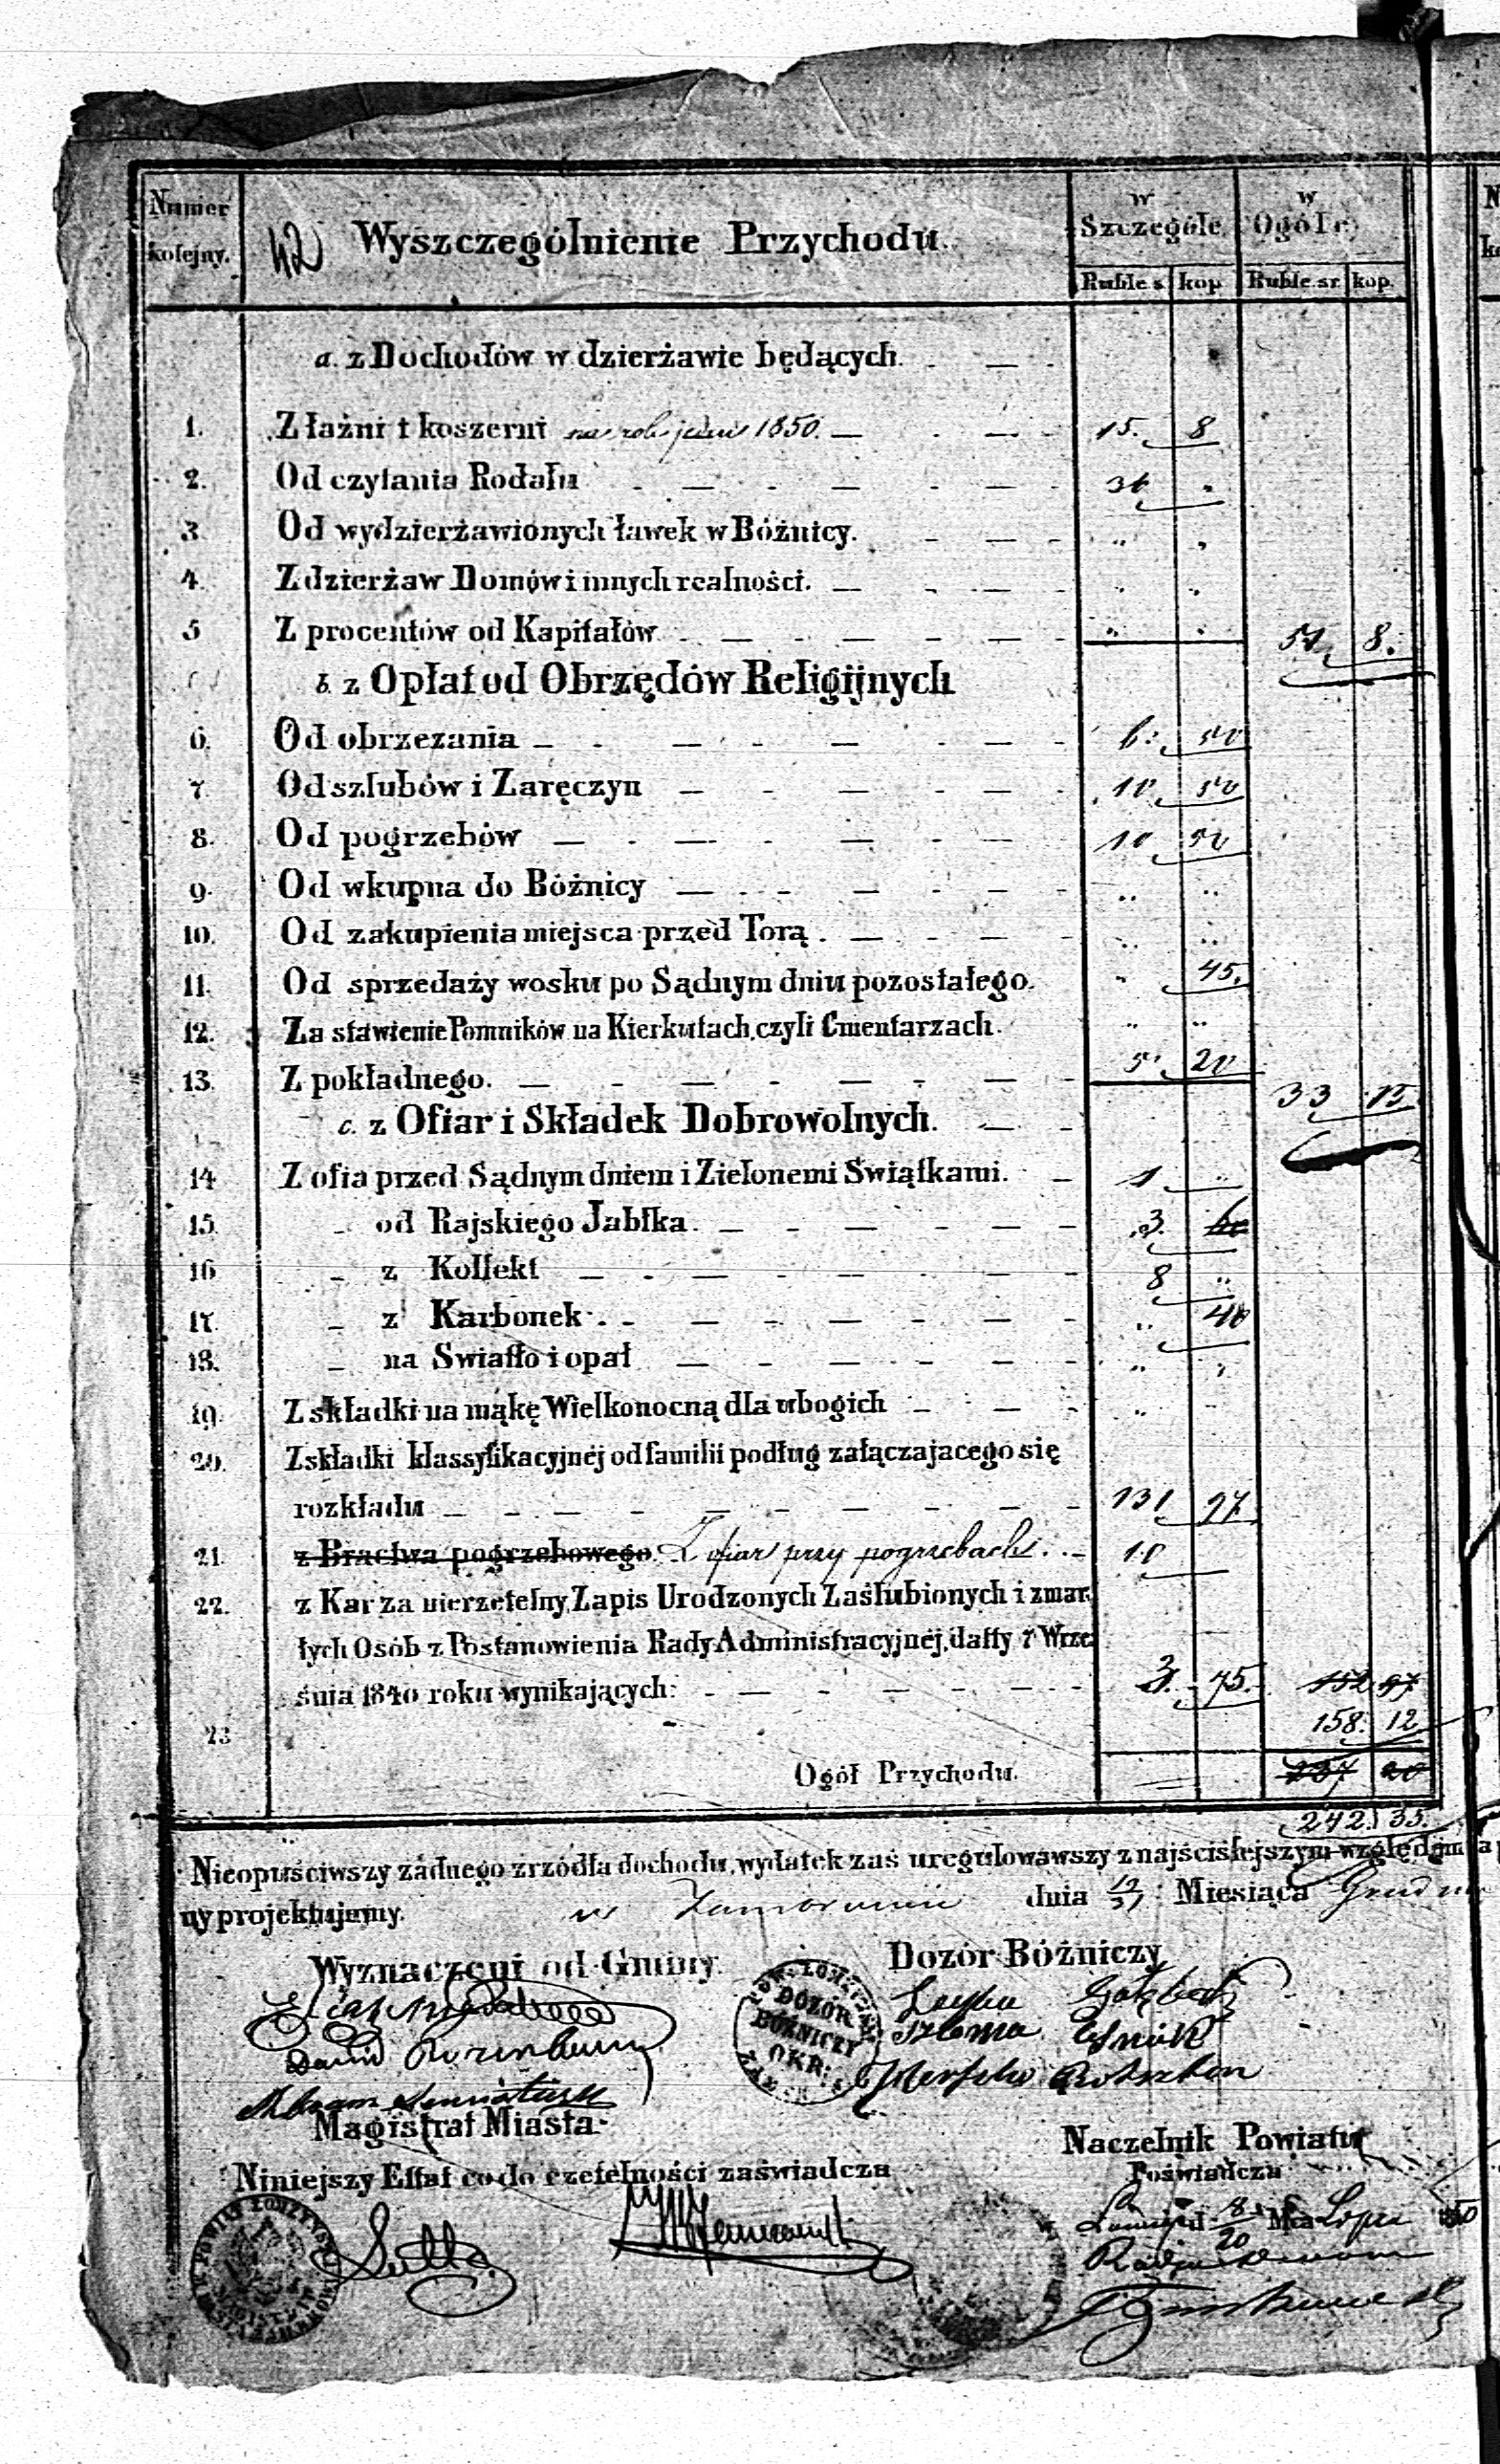 Numer kolejny.
42 Wyszczególnienie Przychodu.
w Szczególe w Ogóle
Ruble s. kop. Ruble sr. kop.
a. z Dochodów w dzierżawie będących. . —
1. Z łaźni i koszerni na rok jeden 1850. — . — . 15. 8
2. Od czytania Rodału . — . — . — . 36 "
3 Od wydzierżawionych ławek w Bóżnicy. - — - " "
4. Z dzierżaw Domów i innych realności. — - — . " "
5 Z procentów od Kapitałów . — . — - — - " " 51 8.
b. z Opłat od Obrzędów Religijnych
6. Od obrzezania — . — . — . — - 6: 50
7. Od szlubów i Zaręczyn — - — - — - 10. 50
8. Od pogrzebów — . — . — . — . 10 50
9. Od wkupna do Bóżnicy — . - — - — - " "
10. Od zakupienia miejsca przed Torą . — - — - " "
11. Od sprzedaży wosku po Sądnym dniu pozostałego. " 45.
12. Za stawienie Pomników na Kierkutach, czyli Cmentarzach. " "
13. Z pokładnego. — - — - — - — - 5. 20 33 15
c. z Ofiar i Składek Dobrowolnych. — -
14 Z ofia przed Sądnym dniem i Zielonemi Swiątkami. — 1 "
15. - od Rajskiego Jabłka. — - — - — - 3.
16 - z Kollekt — . — - — - — - 8 "
17. - z Karbonek . - — - — - — - " 40
18. - na Swiatło i opał — - — - — - " "
19. Z składki na mąkę Wielkonocną dla ubogich - — - " "
20. Z składki klassyfikacyjnéj od familii podług załączajacego się
rozkładu — . — - — - — - — - 131 97
21. z Bractwa pogrzebowego. Z ofiar przy pogrzebach . . - 10
22. z Kar za nierzetelny Zapis Urodzonych Zaślubionych i zmar
łych Osób z Postanowienia Rady Administracyjnéj, datty 7 Wrze
śnia 1840 roku wynikających: - — - — - — - 3. 75. 152 97
23 158. 12
Ogół Przychodu. 237 20
242. 35.
Nieopuściwszy żádnego źrzódła dochodu, wydatek zaś uregulowawszy z najściślejszym względem
ny projektujemy. w dnia 19/31 Miesiąca Grud
Wyznaczeni od Gminy. Dozór Bóżniczy
DOZÓR BÓŻNICZY OKR:
Szloma
David Rozenbaum
Abram
Magistrat Miasta.
Naczelnik Powiatu
Niniejszy Ettat co do rzetelności zaświadcza Poświadcza
8/20 Mca Lipca 1850